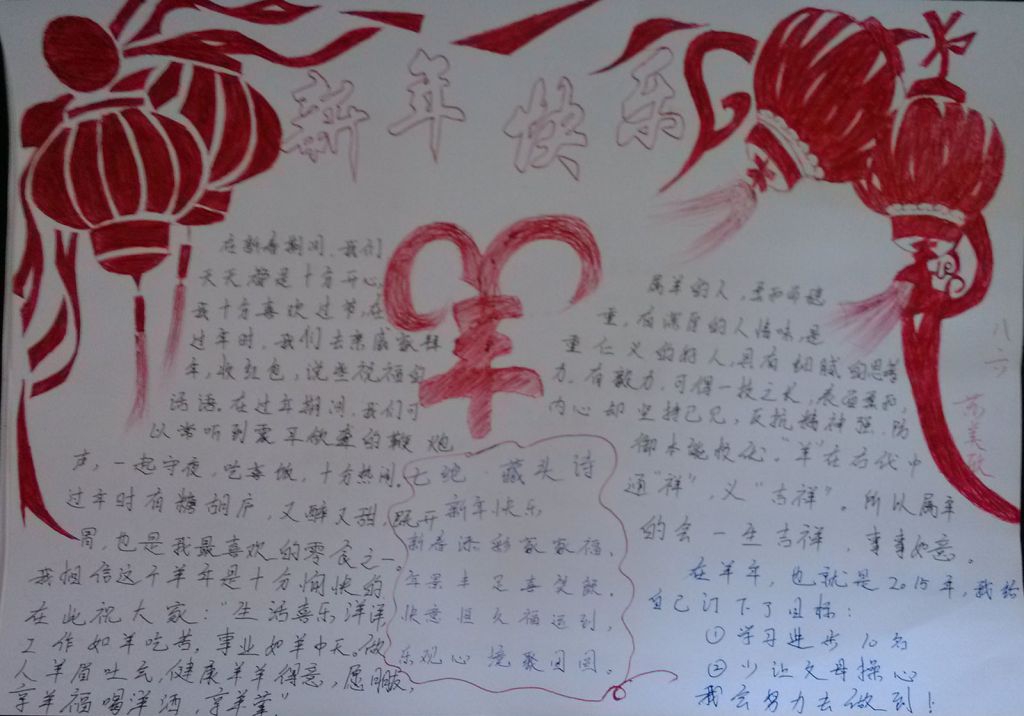 新年快乐
在新春期间,我们
天天都是十分开心,
我十分喜欢过节,在
过年时,我们去亲戚家拜
年,收红包,说些祝福的
话语。在过年期间,我们可
以常听到震耳欲聋的鞭炮
声,一起守夜,吃年饭,十分热闹。
过年时有糖胡庐,又酥又甜,既开
胃,也是我最喜欢的零食之一。
我相信这个羊年是十分愉快的,
在此祝大家:“生活喜乐洋洋
工作如羊吃草,事业如羊中天,做
人羊眉吐气,健康羊羊得意,愿朋友,
享羊福喝洋酒,享羊
羊
七绝 藏头诗
新年快乐
新春添彩家家福,
年景丰足喜笑颜,
快意恒久福运到,
乐观心境聚团圆。
属羊的人,
重,有深厚的人情味,是
重仁义的好人,具有细腻的思考
力,有毅力,可得一技之长,表面柔和,
内心却坚持己见,反抗精神强,防
御本能较优。“羊”在古代中
通“祥”,义“吉祥”。所以属羊
的会一生吉祥,事事如意。
在羊年,也就是2015年,我给
自己订下了目标:
①学习进步10名
②少让父母操心
我会努力去做到!
八六